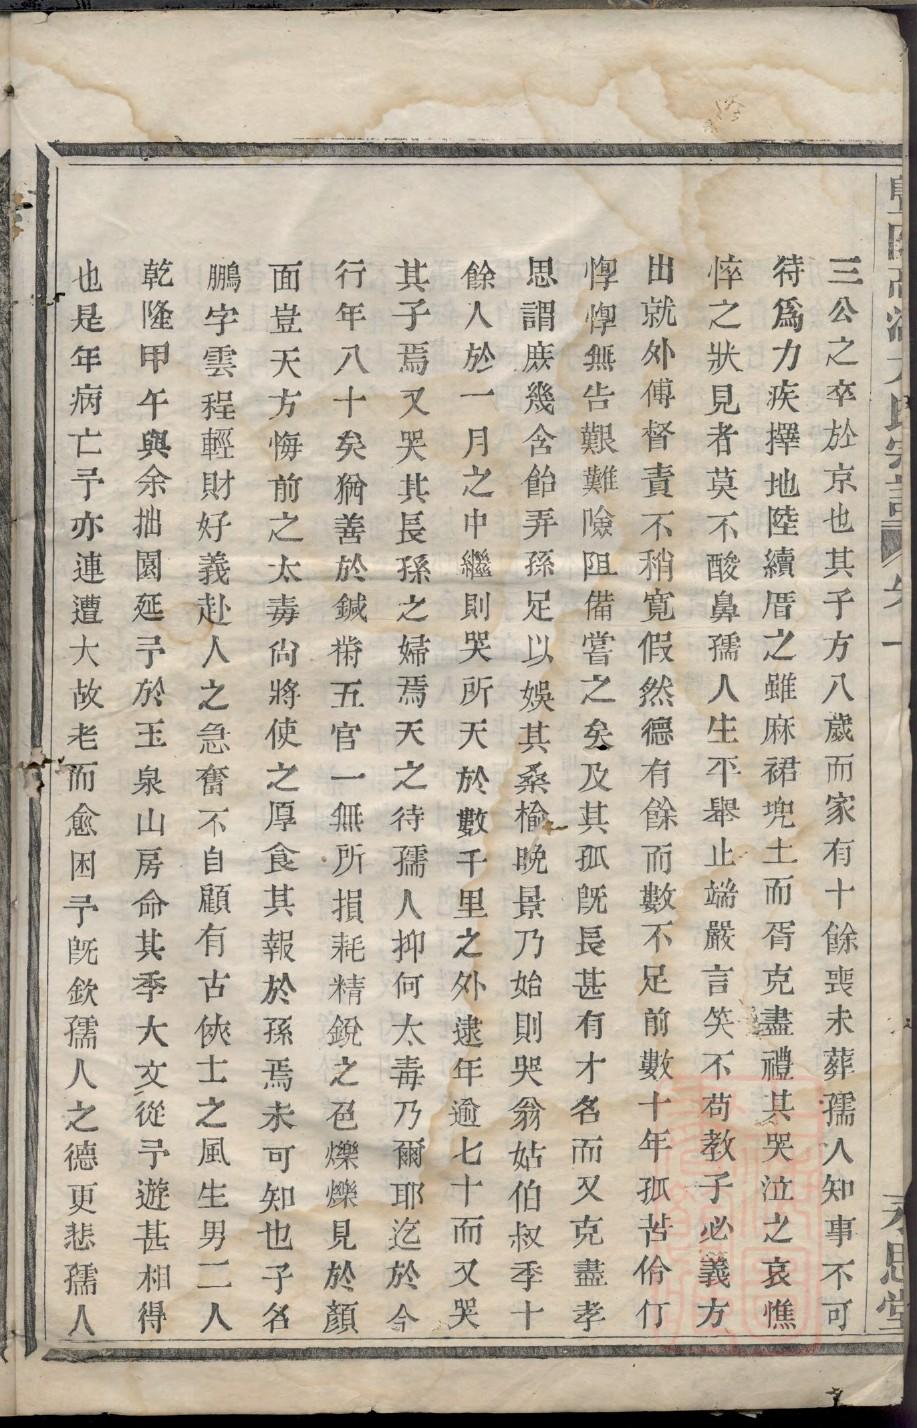 三公之卒於京也其子方八歲而家有十餘喪未葬孺人知事不可
待爲力疾擇地陸續厝之雖麻裙兜土而胥克盡禮其哭泣之哀憔
悴之狀見者莫不酸鼻孺人生平舉止端嚴言笑不苟教子必義方
出就外傅督責不稍寬假然德有餘而數不足前數十年孤苦伶仃
惸惸無告艱難險阻備嘗之矣及其孤旣長甚有才名而又克盡孝
思謂庶幾含飴弄孫足以娛其桑榆晚景乃始則哭翁姑伯叔季十
餘人於一月之中繼則哭所天於數千里之外逮年逾七十而又哭
其子焉又哭其長孫之婦焉天之待孺人抑何太毒乃爾耶迄於今
行年八十矣猶善於鍼黹五官一無所損耗精銳之色爍爍見於顏
面豈天方悔前之太毒尙將使之厚食其報於孫焉未可知也子名
鵬字雲程輕財好義赴人之急奮不自顧有古俠士之風生男二人
乾隆甲午與余拙園延予於玉泉山房命其季大文從予遊甚相得
也是年病亡予亦連遭大故老而愈困予旣欽孺人之德更悲孺人